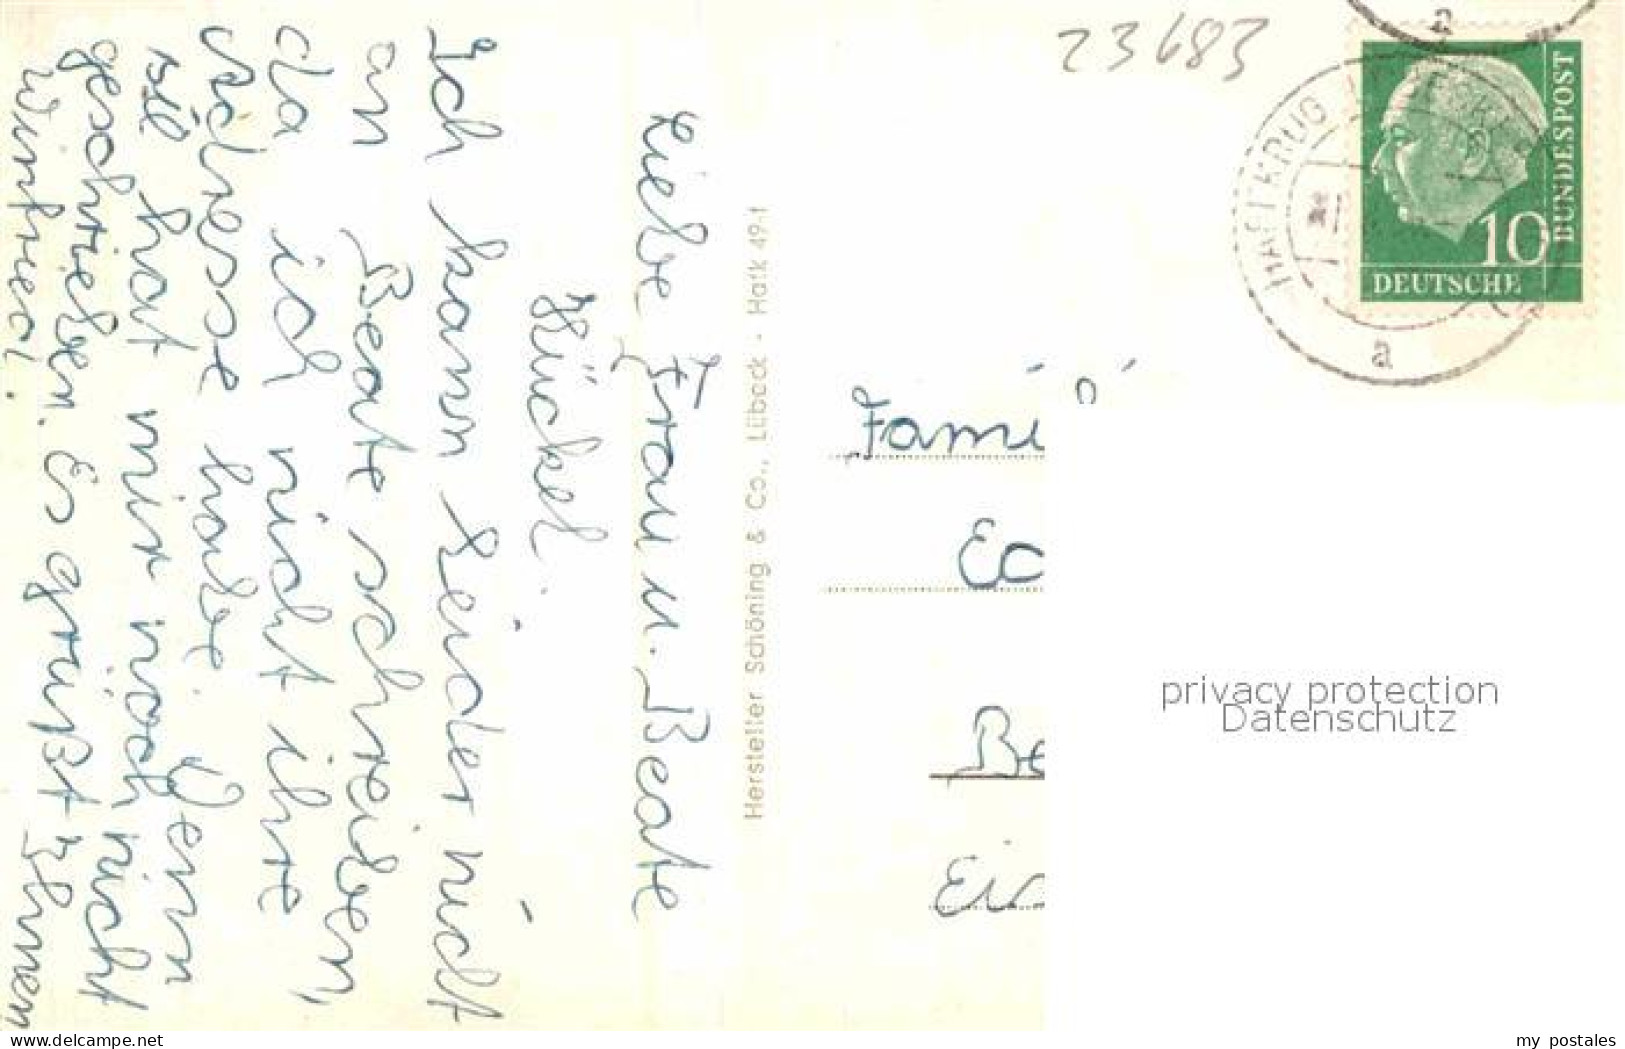 23683
Liebe Frau u. Beate
Hückel.
Ich kann leider nicht
an Beate schreiben,
da ich nicht ihre
Adresse habe. Denn
sie hat mir noch nicht
geschrieben. Es grüßt Ihnen
Winfried.
Hersteller Schöning & Co., Lübeck - Haffk 49-1
Fami
Ec
Be
Ei
HAFFKRUG
a
a
10
DEUTSCHE
BUNDESPOST
privacy protection
Datenschutz
www.delcampe.net
my_postales